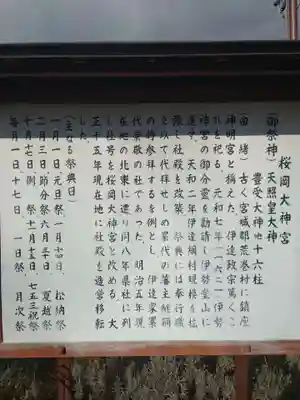 桜岡大神宮
(御祭神)天照皇大神
豊受大神他十六柱
(由緒)古く宮城郡荒巻村に鎮座
神明宮と称えた、伊達政宗篤くこ
れを祀る、元和七年(一六二一)伊勢
神宮の御分霊を勧請し伊勢堂山に
遷す、天和二年伊達綱村規模を拡
張し社殿を改築、祭典には奉行職
を以て代拝せしめ累代の藩主継嗣
の時参拝するを例とし、伊達家累
代崇敬の社であった、明治五年現
在地の北東に遷り同八年県社に列
し社号を桜岡大神宮と改める、大
正十五年現在地に社殿を造営移転
した。
(主なる祭典日)
一月一日 元旦祭 一月十四日 松納祭
二月三日 節分祭 六月三十日 夏越祭
十月十七日 例祭 十一月十五日 七五三祝祭
毎月一日、十七日、一日祭、月次祭